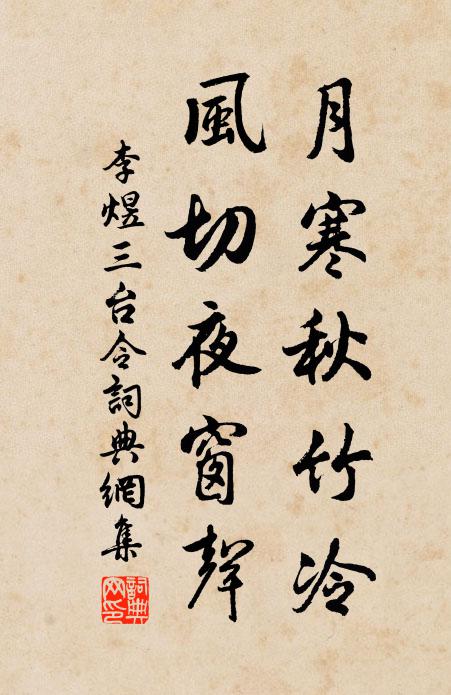 月寒秋竹冷
風切夜窗聲
李煜三台令詞典網集
詞典網印